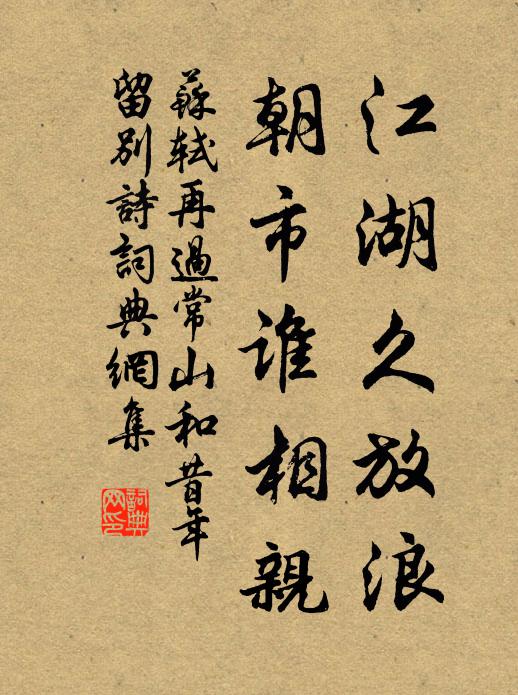 江湖久放浪
朝市誰相親
蘇軾再過常山和昔年
留別詩詞典網集
詞典
网印